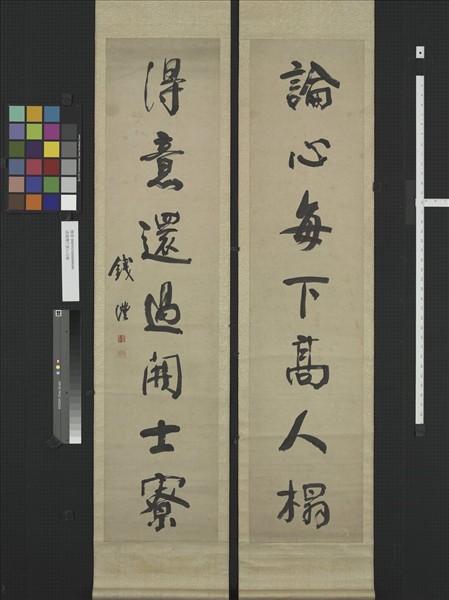 論心每下髙人榻
得意還過開士寮
錢灃